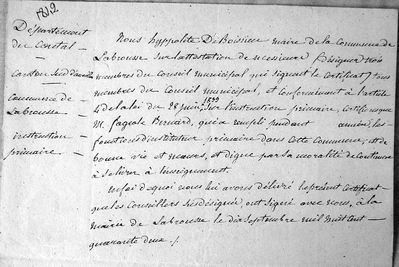 1842
Département
du Cantal
—
Canton Sud d'aurillac
—
Commune de
Labrousse
—
instruction
primaire
Nous hyppolite DeBoissieu maire de la Commune de
Labrousse sur l'attestation de messieurs (Désigner) trois
membres du Conseil municipal qui signent le Certificat) tous
membres du Conseil municipal, et conformément à l'article
4 de la loi du 28 juin 1833 sur l'instruction primaire, certifions que
M. fageole Bernard, qui a rempli pendant années, les
fonctions d'instituteur primaire dans cette Commune, est de
bonne vie et mœurs, et digne par sa moralité de continuer
à se livrer à l'enseignement.
en foi de quoi nous lui avons délivré le présent certificat
que les Conseillers susdésignés, ont signé avec nous, à la
mairie de Labrousse le dix Septembre mil huit cent
quarante deux ./.